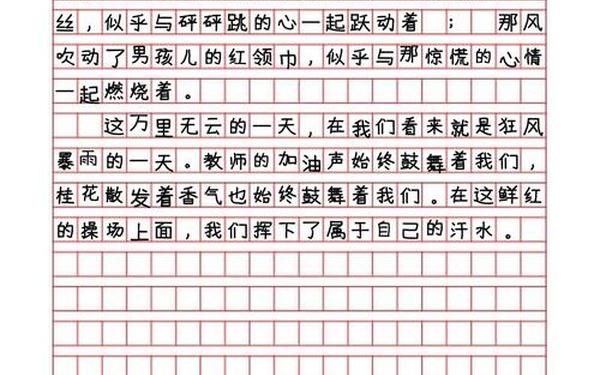 丝，似乎与砰砰跳的心一起跃动着； 那风
吹动了男孩儿的红领巾，似乎与那惊慌的心情
一起燃烧着。
这万里无云的一天，在我们看来就是狂风
暴雨的一天。教师的加油声始终鼓舞着我们，
桂花散发着香气也始终鼓舞着我们。在这鲜红
的操场上面，我们挥下了属于自己的汗水。